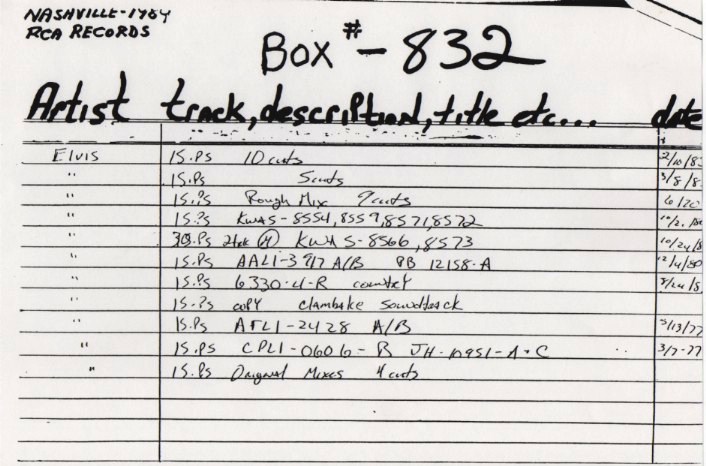 NASHVILLE-1984
RCA RECORDS
Box #-832
Artist track, description, title etc... date
Elvis 15.Ps 10 cuts 2/10/83
" 15.Ps 5 cuts 3/8/8
" 15.Ps Rough Mix 9 cuts 6/20
" 15.Ps KWAS-8554, 8559, 8571, 8572
" 30.Ps 2trk KWAS-8566, 8573 10/24/8
" 15.Ps AALI-3917 A/B PB 12158-A 12/4/80
" 15.Ps 6330-4-R country
" 15.Ps copy clambake soundtrack
" 15.Ps AFLI-2428 A/B 5/13/77
" 15.Ps CPLI-0606-B 3/7-77
" 15.Ps Original Mixes 4 cuts